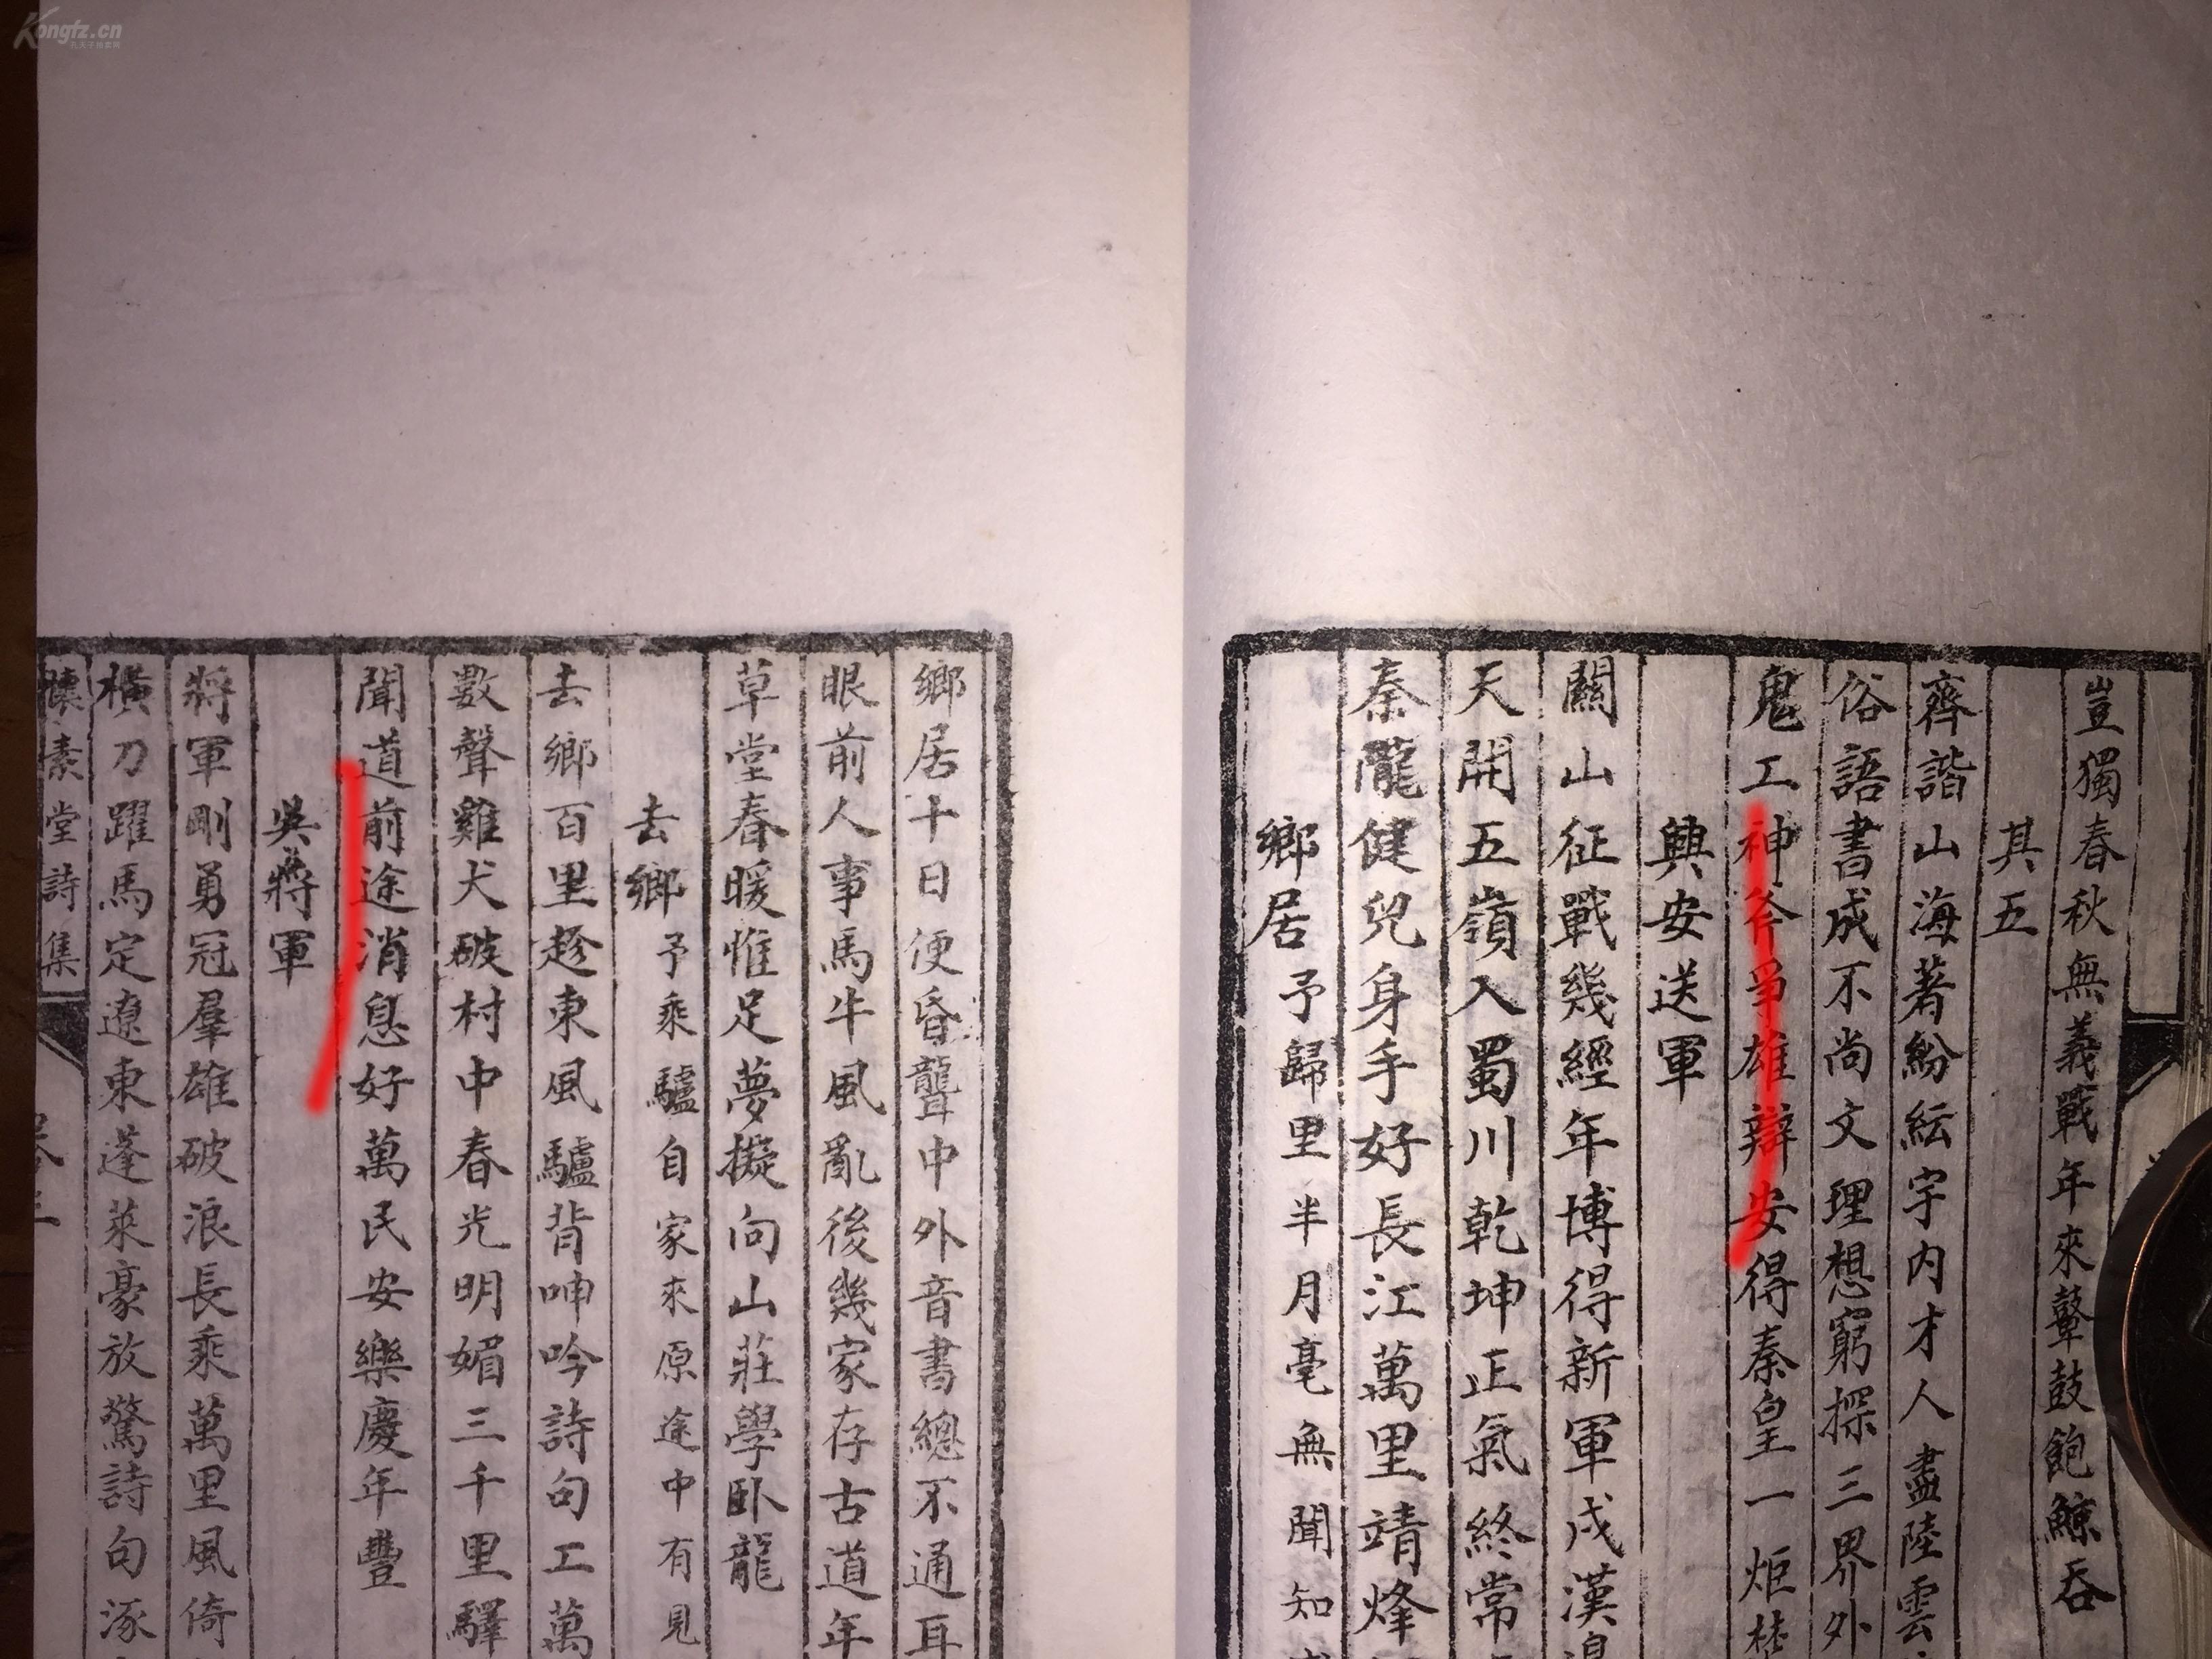 豈獨春秋無義戰年來鼙鼓飽鯨吞
其五
齊諧山海著紛紜宇内才人盡陸雲
俗語書成不尚文理想窮探三界外
鬼工神斧爭雄辯安得秦皇一炬
興安送軍
關山征戰幾經年博得新軍戍漢
天開五嶺入蜀川乾坤正氣終常
秦隴健兒身手好長江萬里靖烽
鄉居予歸里半月毫無聞知
鄉居十日便昏聾中外音書總不通耳
眼前人事馬牛風亂後幾家存古道年
草堂春暖惟足夢擬向山莊學卧龍
去鄉予乘驢自家來原途中有見
去鄉百里趁東風驢背呻吟詩句工萬
數聲雞犬破村中春光明媚三千里驛
聞道前途消息好萬民安樂慶年豐
吳蔣軍
將軍剛勇冠羣雄破浪長乘萬里風倚
橫刀躍馬定遼東蓬萊豪放驚詩句涿
懷素堂詩集
Kongfz.cn